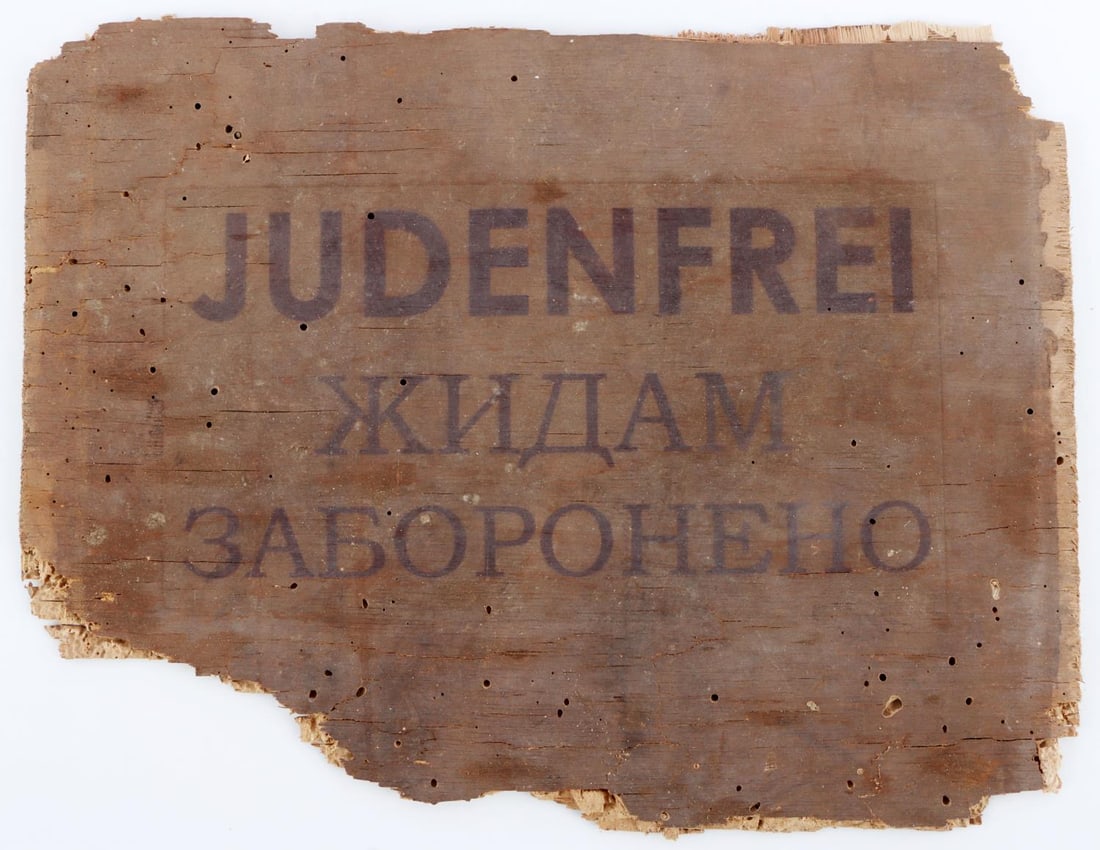 JUDENFREI
ЖИДАМ
ЗАБОРОНЕНО